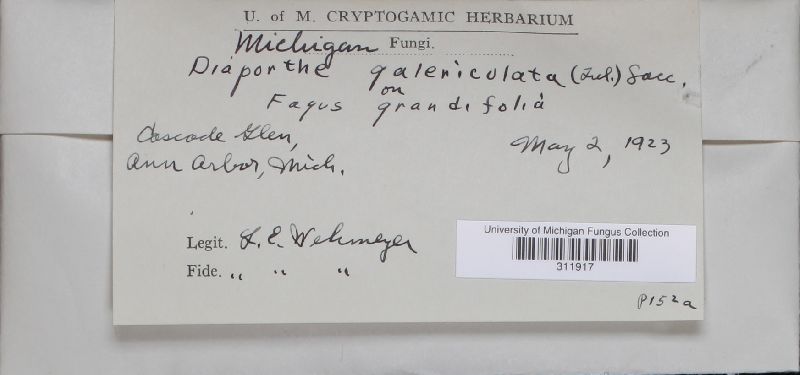 U. of M. CRYPTOGAMIC HERBARIUM
Michigan Fungi.
Diaporthe galericulata (Tul.) Sacc.
on
Fagus grandifolia
Cascade Glen,
May 2, 1923
Ann Arbor, Mich.
Legit. L. E. Wehmeyer
University of Michigan Fungus Collection
311917
Fide. " " "
P152a